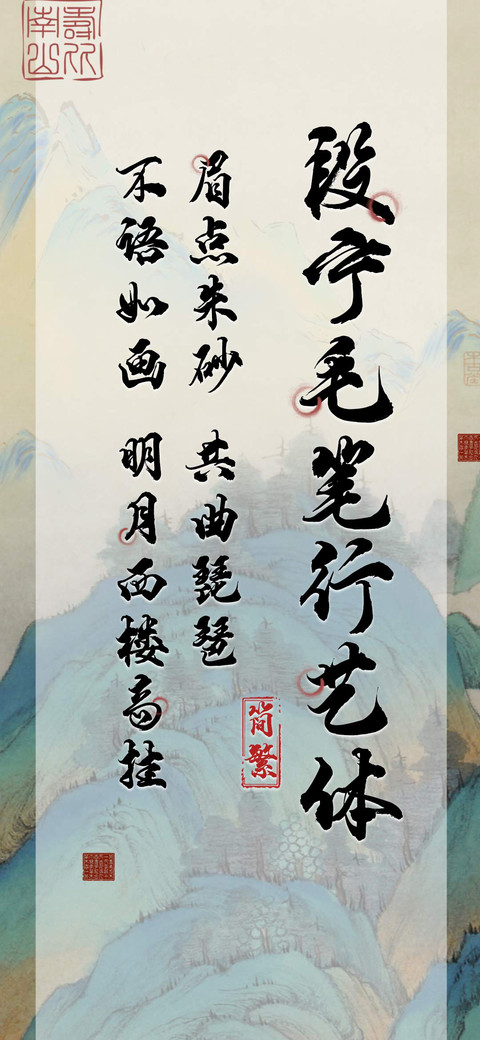 段宁毛笔行艺体
眉点朱砂 共曲琵琶
不语如画 明月西楼高挂
简繁
南山